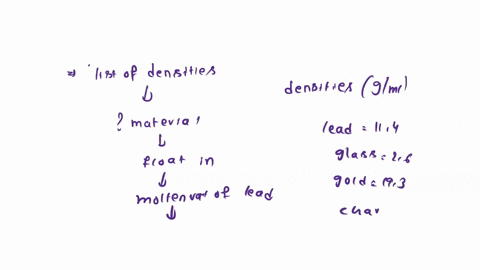 ⇒ list of densities
? material
float in
molten vat of lead
densities (g/ml)
lead = 11.4
glass = 2.6
gold = 19.3
char